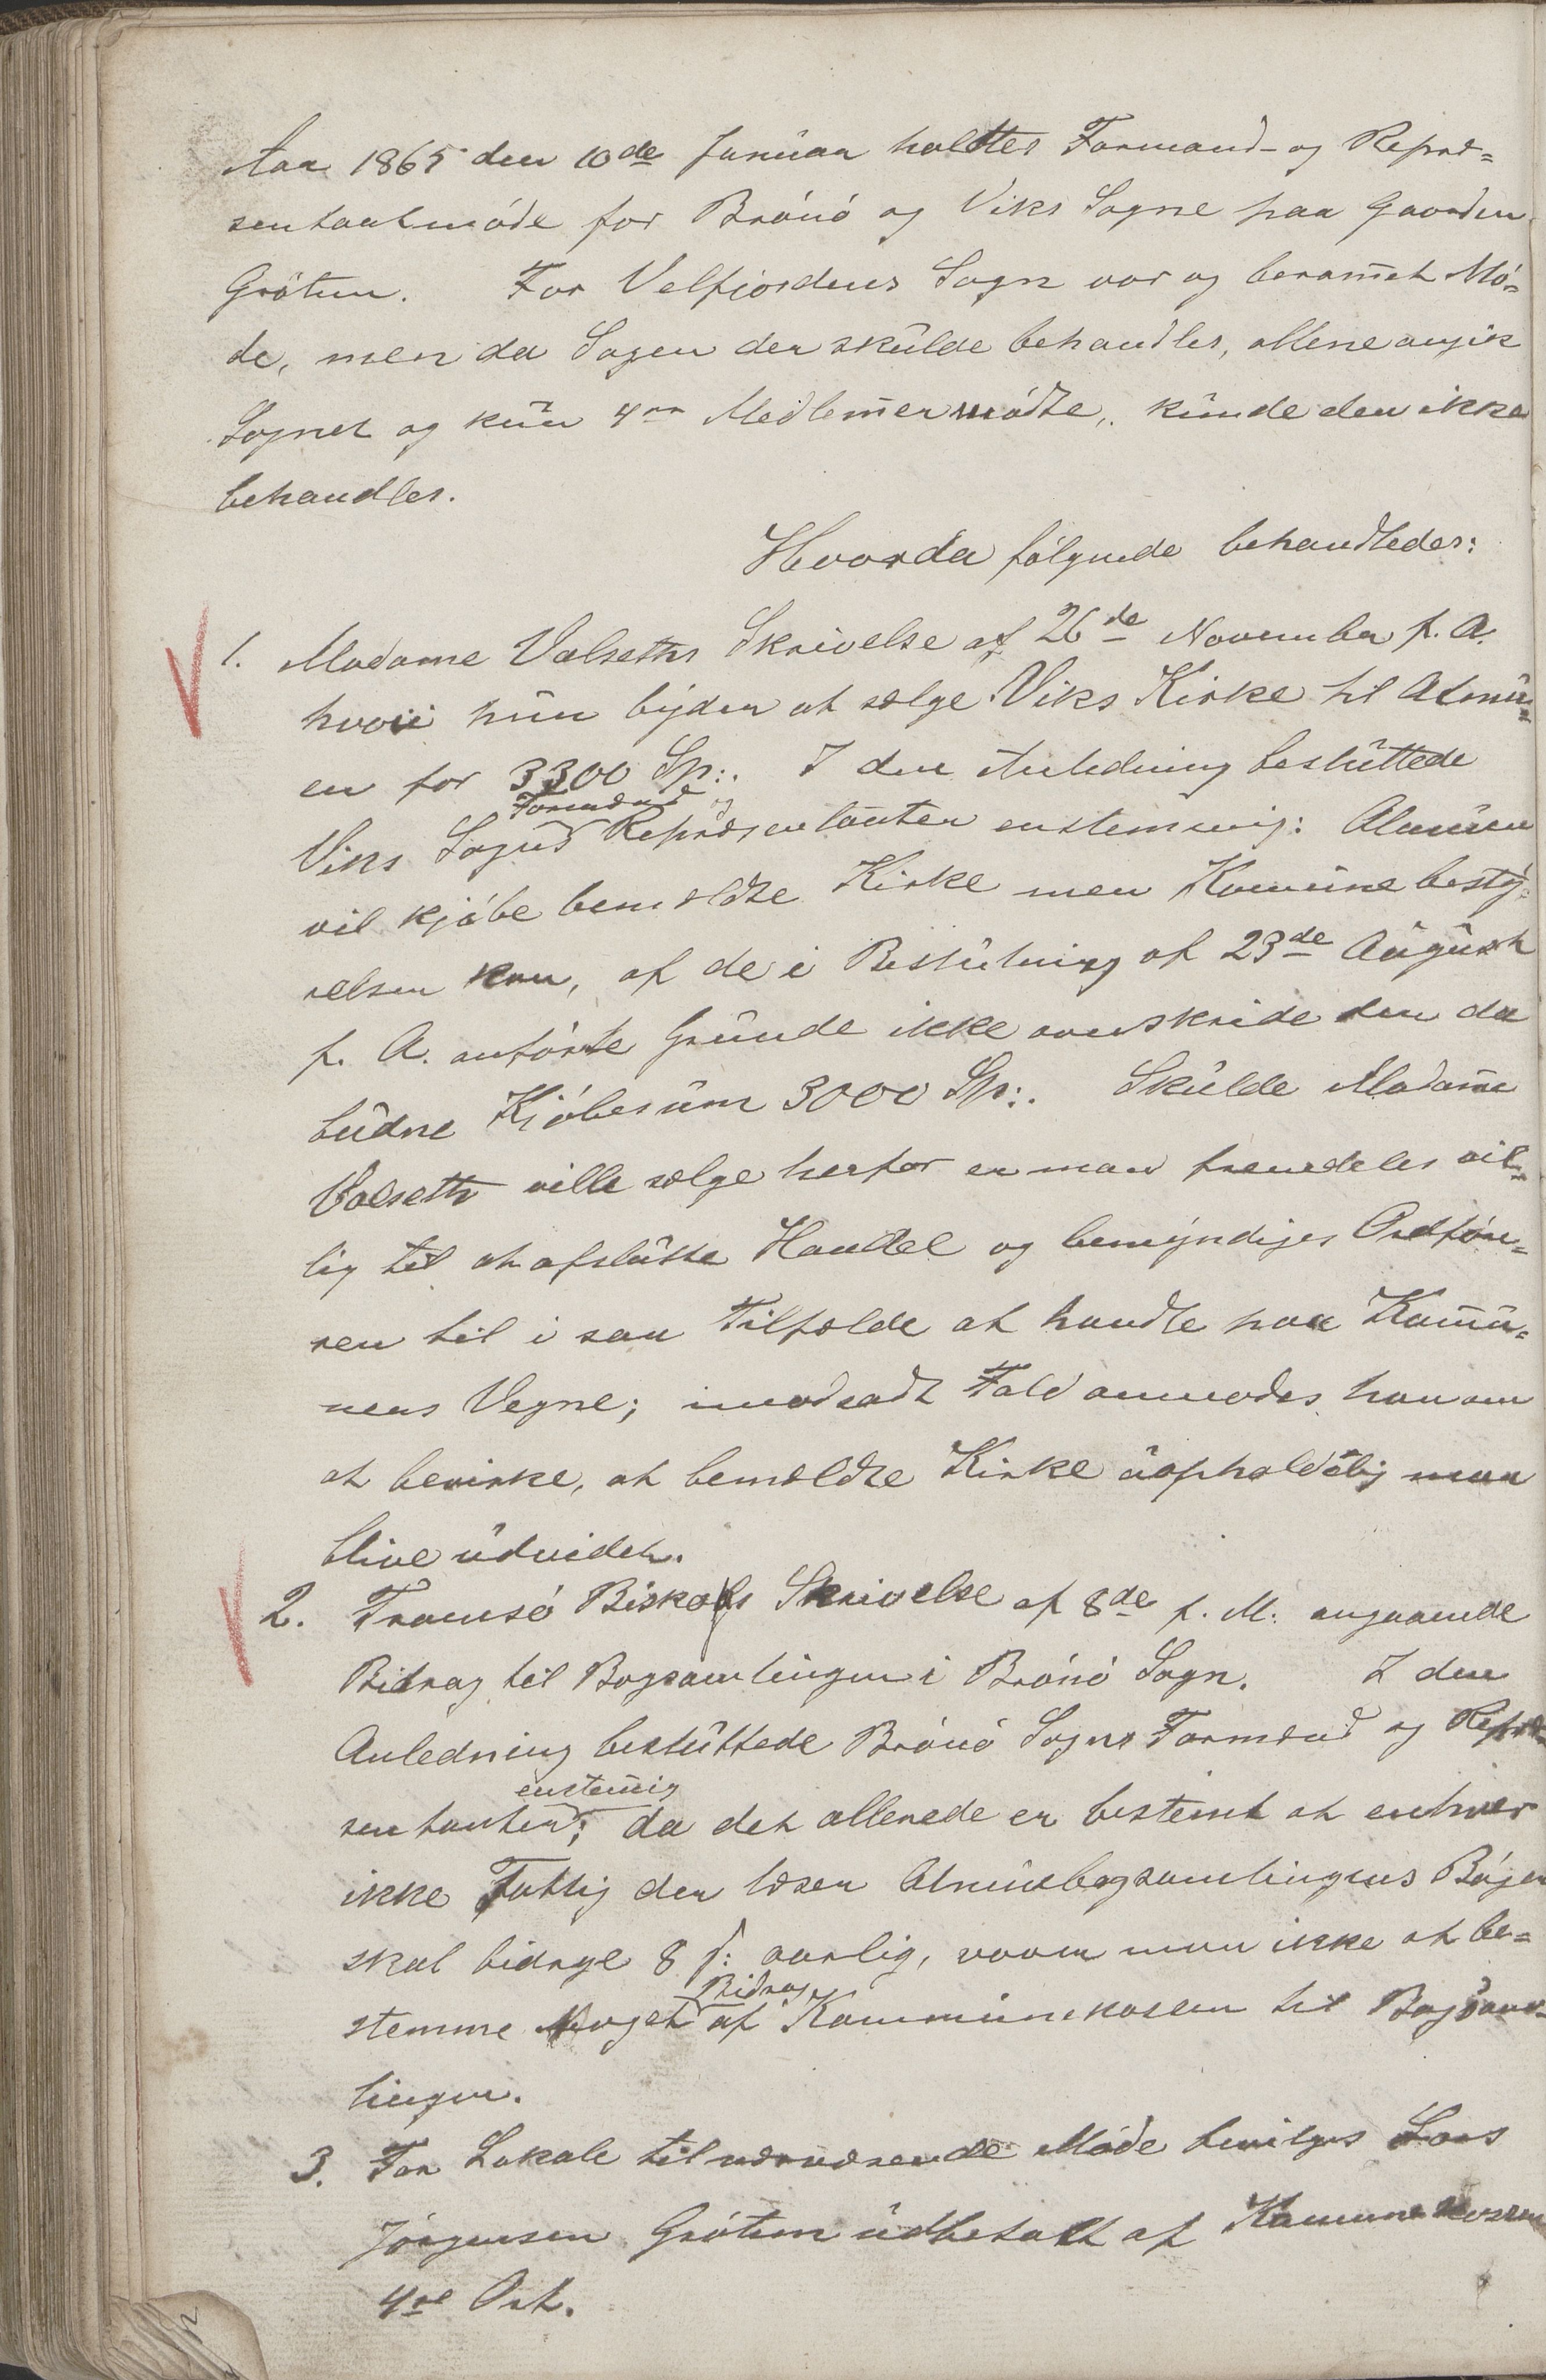 Aar 1865 den 10de Januar holdtes Formand- og Repræ=
sentantmöde for Brönö og Viks Sogne paa Gaarden
Gröten. For Velfjordens Sogn var og berammet Mö=
de, men da Sagen der skulde behandles, allene angik
Sognet og kun 4re Medlemmer mödte, kunde den ikke
behandles.
Hvorda fölgende behandledes:
1. Madame Valseths Skrivelse af 26de November f. A.
hvori hun byder at sælge Viks Kirke til Almu=
en for 3300 Sp:. I den Anledning besluttede
Formænd og
Viks Sogns Repræsentanter enstemmig: Almuen
vil kjöbe bemeldte Kirke men Kommunebesty=
relsen kan, af de i Beslutning af 23de August
f. A. anförte Grunde ikke overskride den da
budne Kjöbesum 3000 Sp:. Skulde Madame
Valseth ville sælge herfor er man fremdeles vil=
lig til at afslutte Handel og bemyndiges Ordföre=
ren til i saa Tilfælde at handle paa Kommu=
nens Vegne; i modsadt Fald anmodes han om
at bevirke, at bemeldte Kirke uopholdelig maa
blive udvidet.
2. Tromsö Biskops Skrivelse af 8de f. M. angaaende
Bidrag til Bogsamlingen i Brönö Sogn. I den
Anledning besluttede Brönö Sogns Formænd og Repræ=
enstemmig
sentanter; da det allerede er bestemt at enhver
ikke Fattig der læser Almuebogsamlingens Böger
skal bidrage 8 s: aarlig, vover man ikke at be=
Bidrag
stemme Noget af Kommunekassen til Bogsam=
lingen.
3. For Lokale til nærværende Möde bevilges Lars
Jörgensen Gröten udbetalt af Kommunekassen
4re Ort.